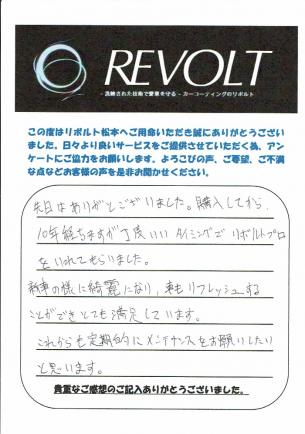 REVOLT
- 洗練された技術で愛車を守る - カーコーティングのリボルト
この度はリボルト松本へご用命いただき誠にありがとうござい
ました。日々より良いサービスをご提供させていただく為、アン
ケートにご協力をお願いします。よろこびの声、ご要望、ご不満
な点などお客様の声を是非お聞かせください。
先日はありがとうございました。購入してから、
10年経ちますが丁度いいタイミングでリボルトプロ
をいれてもらいました。
新車の様に綺麗になり、車もリフレッシュする
ことができとても満足しています。
これからも定期的にメンテナンスをお願いしたい
と思います。
貴重なご感想のご記入ありがとうございました。